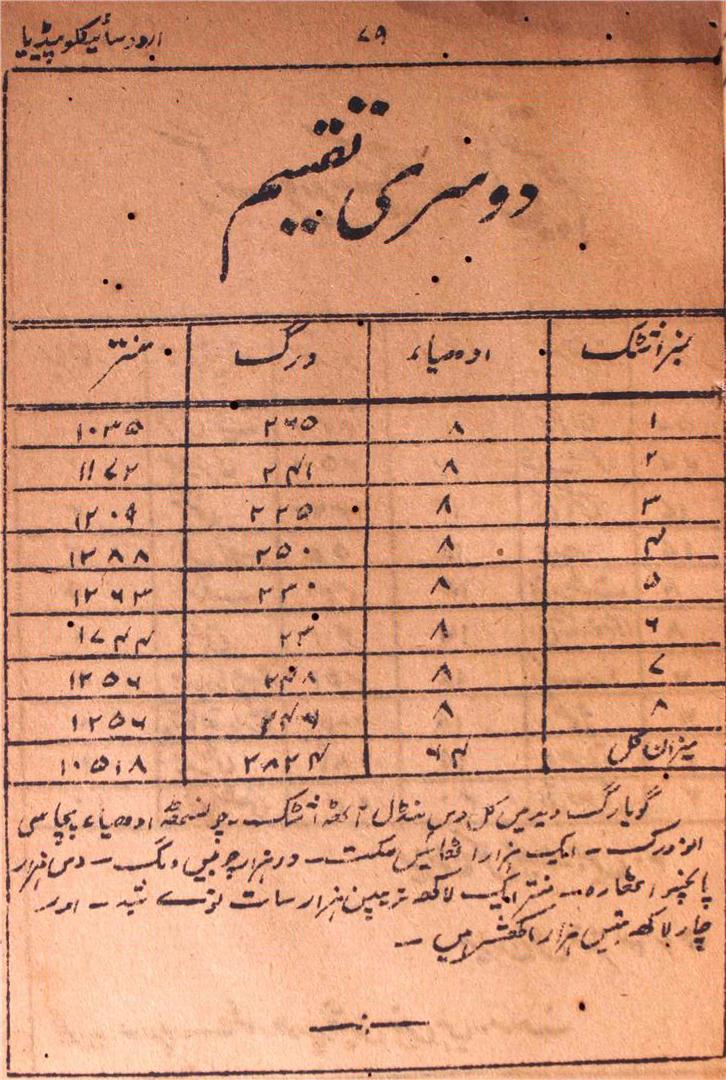 اردو سائیکلوپیڈیا ۷۹
دوسری تقسیم
نمبر اشٹک ادھیاء ورگ منتر
۱ ۸ ۲۶۵ ۱۰۳۵
۲ ۸ ۲۴۱ ۱۱۷۲
۳ ۸ ۲۲۵ ۱۲۰۹
۴ ۸ ۲۵۰ ۱۲۸۸
۵ ۸ ۲۳۰ ۱۲۶۳
۶ ۸ ۲۳ ۱۷۴۴
۷ ۸ ۲۴۸ ۱۲۵۶
۸ ۸ ۲۴۶ ۱۲۵۶
میزان کل ۶۴ ۲۸۲۴ ۱۰۵۱۸
گویا رگ وید میں کل دس منڈل آٹھ اشٹک۔ چونسٹھ ادھیاء پچاسی
انوورک۔ ایک ہزار اٹھائیس سکت۔ دو ہزار چوبیس ورگ۔ دس ہزار
پانچسو اٹھارہ منتر ایک لاکھ ترپین ہزار سات نوے شبد۔ اور
چار لاکھ بتیس ہزار اکھشر ہیں۔